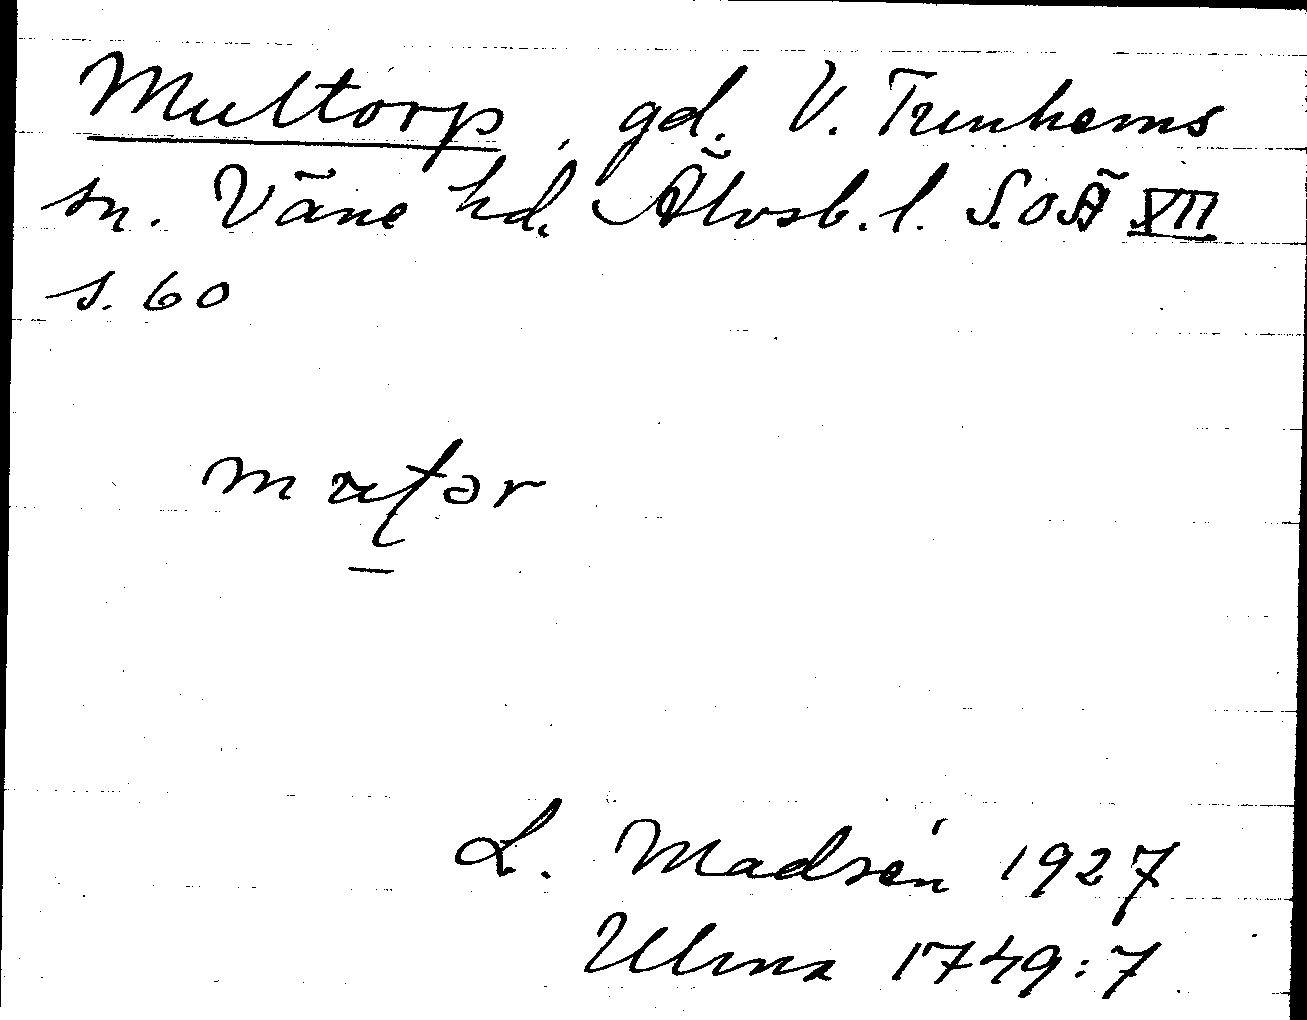 Multorp, gd. V. Tunhems
sn. Väne hd. Älvsb. l. S.O.Ä XII
s. 60
L. Madsén 1927
Ulma 1749:7